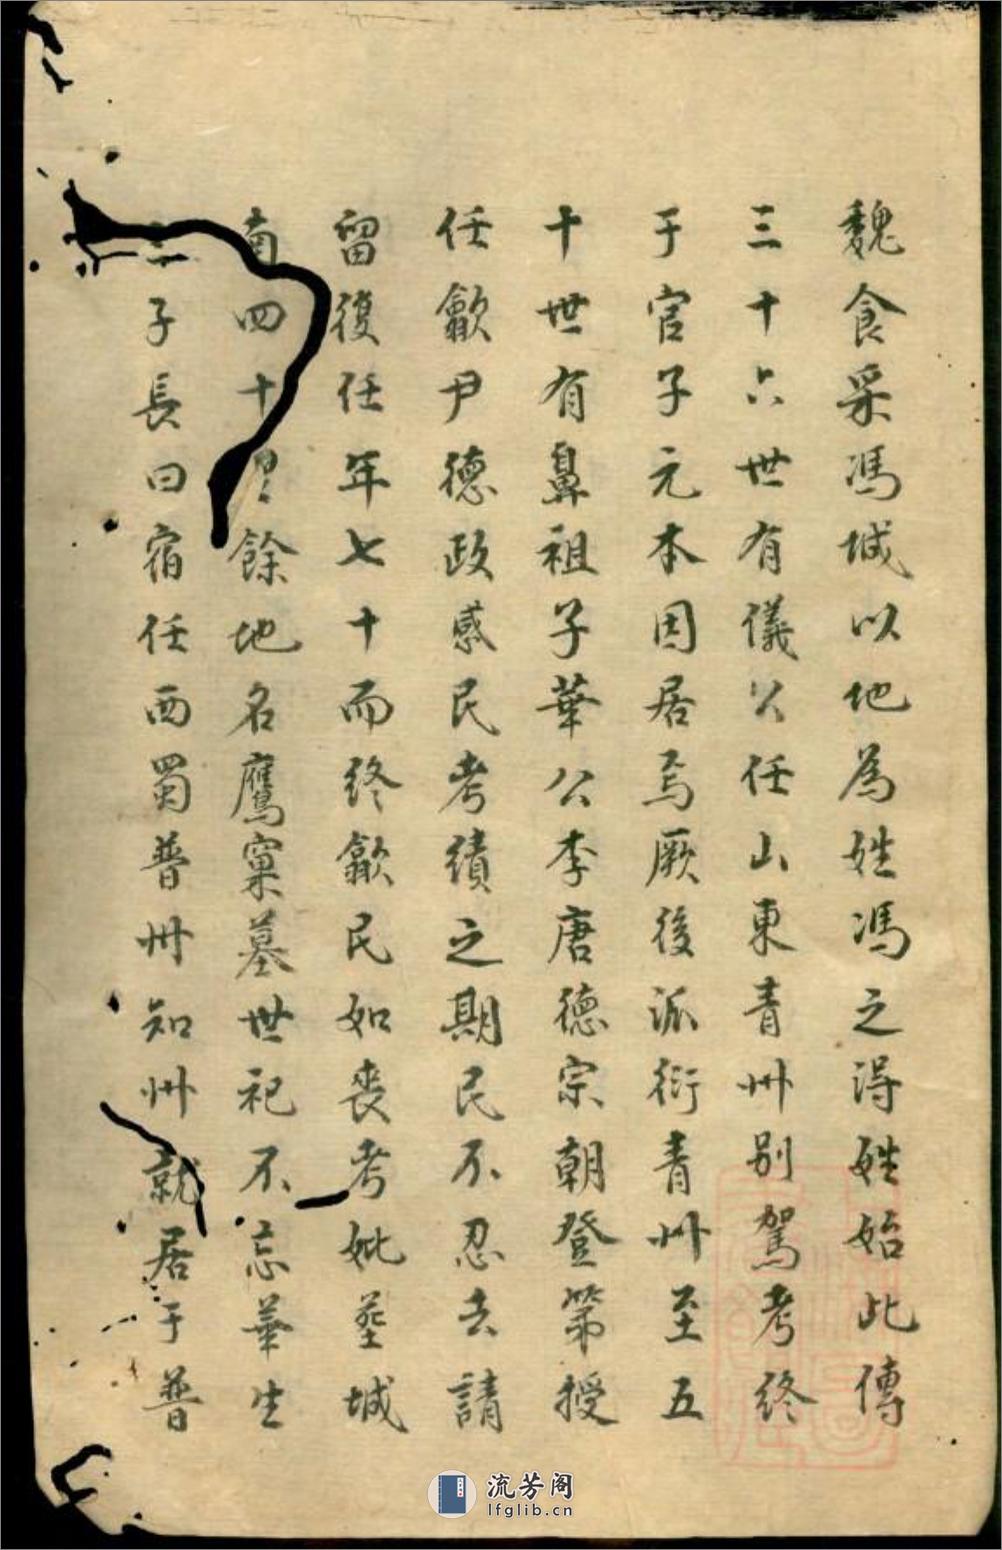 魏食采馮城以地為姓馮之淂姓始此傳
三十六世有儀公任山東青州別駕考終
于官子元本因居焉厥後派衍青州至五
十世有鼻祖子華公李唐德宗朝登第授
任歙尹德政感民考績之期民不忍去請
留復任年七十而終歙民如喪考妣塟城
南四十里餘地名鷹窠墓世祀不忘華生
子長曰宿任西蜀普州知州就居于普
流芳阁
lfglib.cn